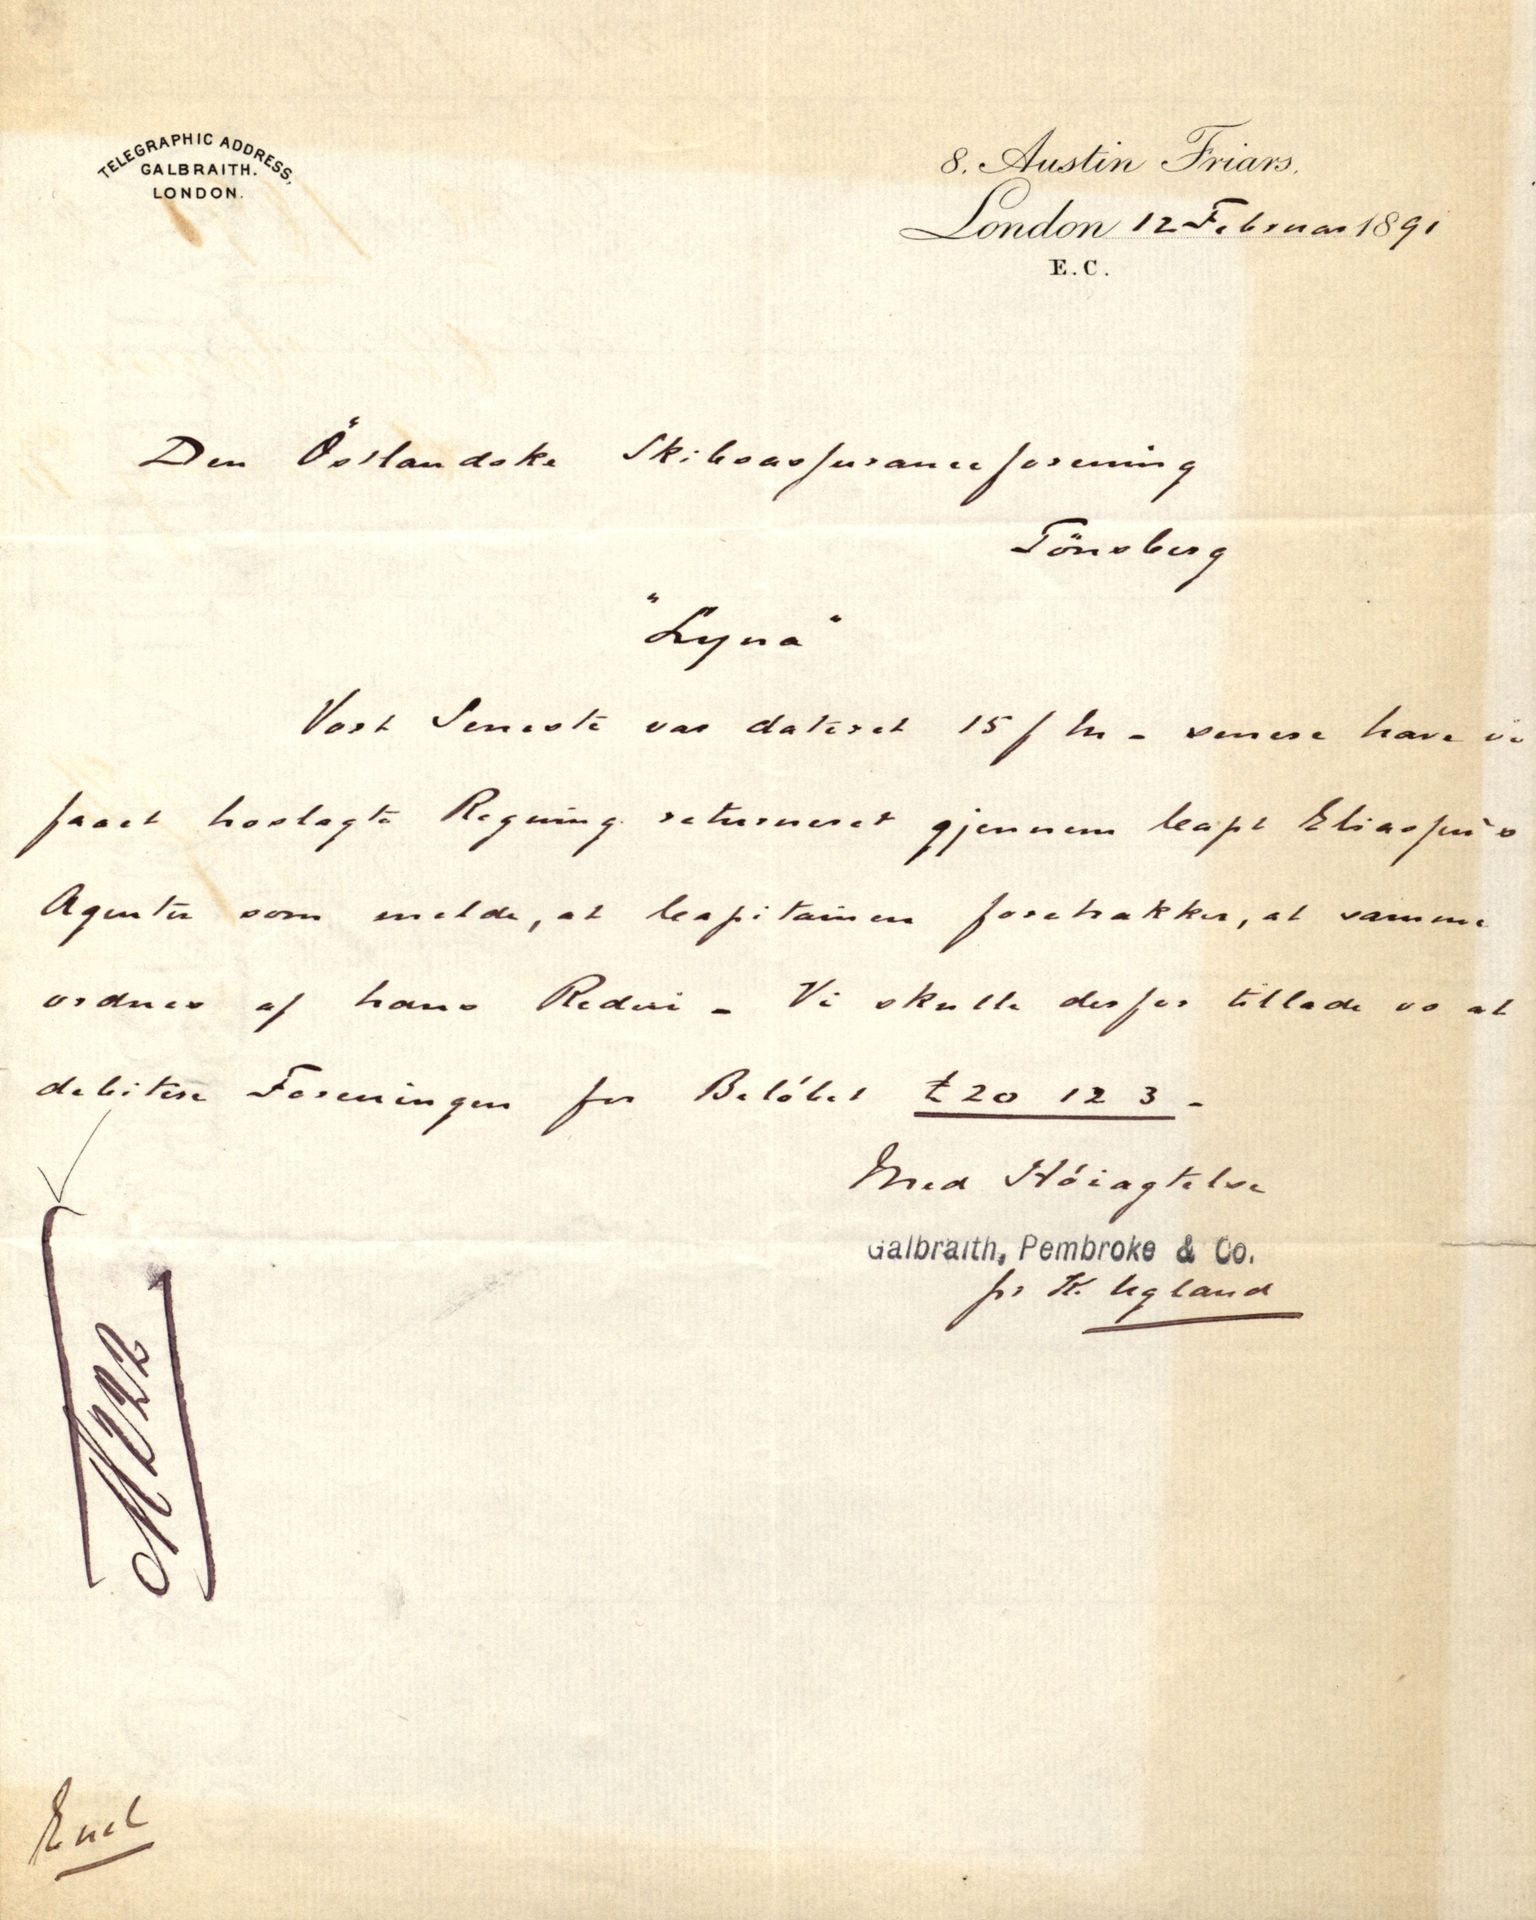 TELEGRAPHIC ADDRESS,
GALBRAITH.
LONDON.
8. Austin Friars.
London 12 Februar 1891
E.C.
Den Östlandske Skibsassuranceforening
Tönsberg
"Lyna"
Vort Seneste var dateret 15 f M - senere have vi
faaet hoslagte Regning returneret gjennem Capt
Agenter som melde, at Capitainen foretrækker, at samme
ordnes af hans Rederi - Vi skulle derfor tillade os at
debitere Foreningen for Belóbet £20 12 3 -
Med Hóiagtelse
Galbraith, Pembroke & Co.
pr K. Ugland
M 222
Encl